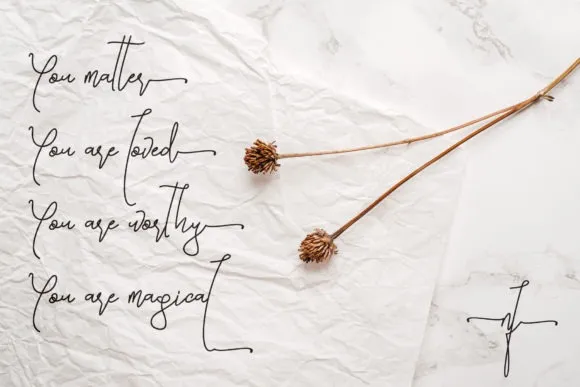 You matter
You are loved
You are worthy
You are magical